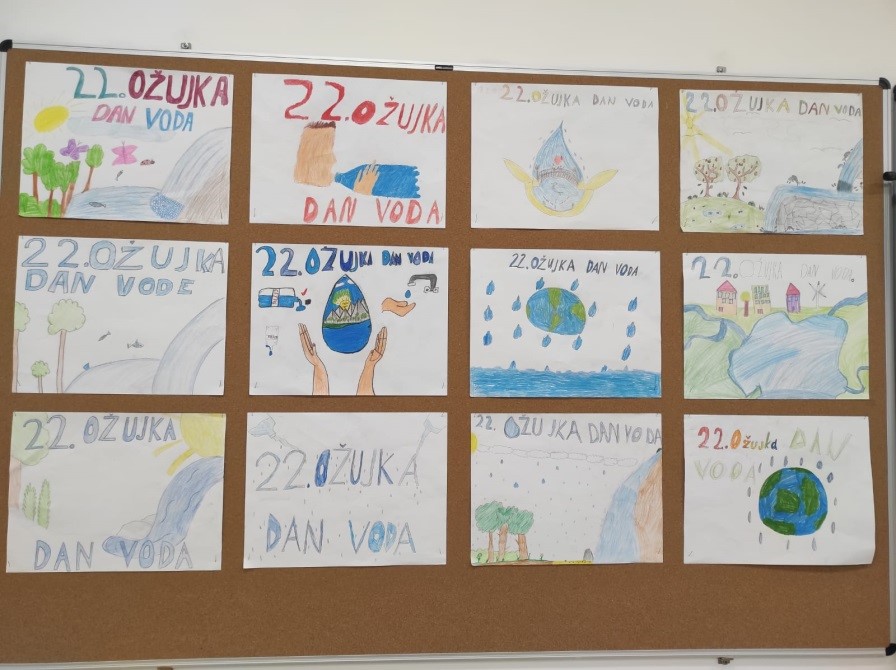 22. OŽUJKA
DAN VODA
22. OŽUJKA
DAN VODA
22. OŽUJKA DAN VODA
22. OŽUJKA DAN VODA
22. OŽUJKA
DAN VODE
22. OŽUJKA DAN VODA
22. OŽUJKA DAN VODA
22. OŽUJKA DAN VODA
22. OŽUJKA
DAN VODA
22. OŽUJKA
DAN VODA
22. OŽUJKA DAN VODA
22. Ožujka DAN
VODA